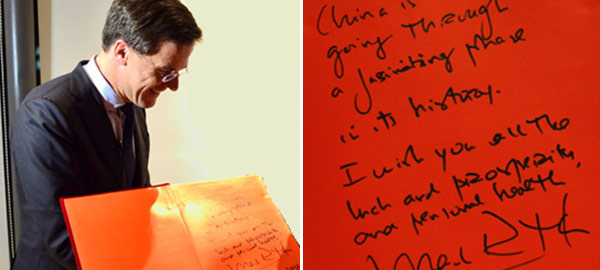 China is
going Through
a fascinating phase
in its history.
I wish you all The
luck and prosperity,
and personal health,